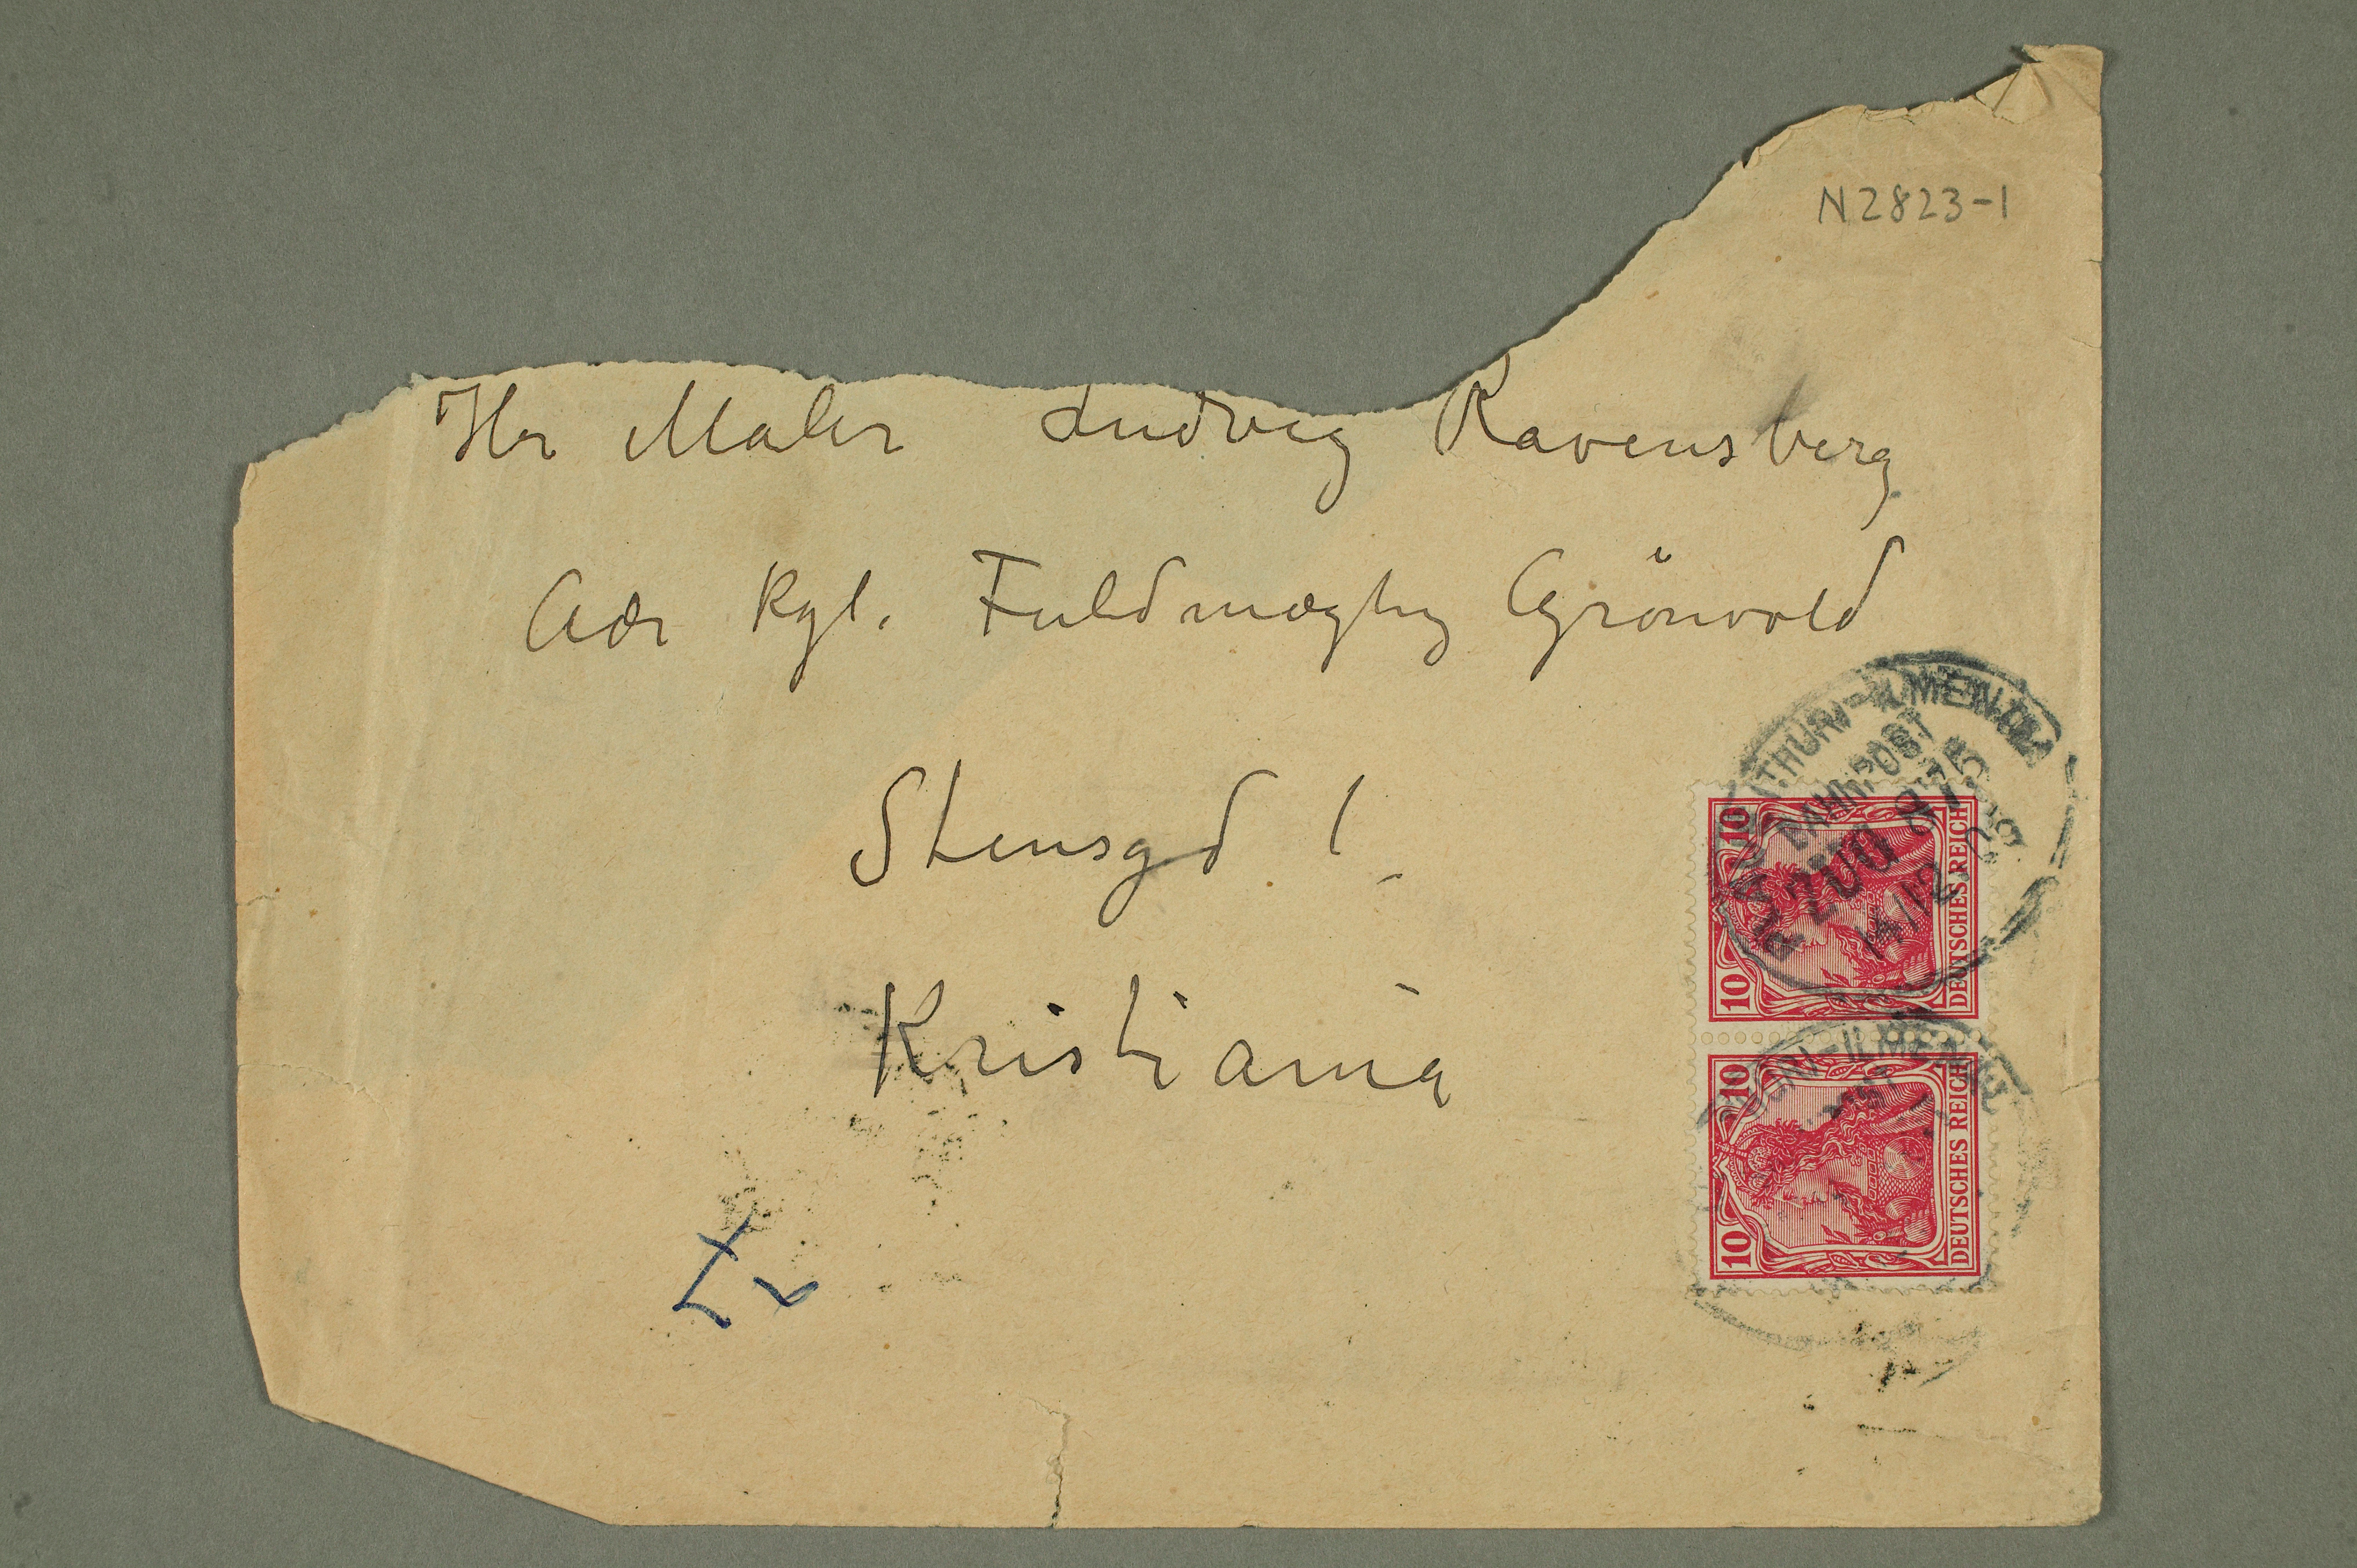 N 2823-1
Hr Maler Ludvig Ravensberg
Adr Kgl. Fuldmægtig Grönvold
Stensgd 1
Kristiania
BAHNPOST
ZUG
10 10
DEUTSCHES REICH
10 10
DEUTSCHES REICH